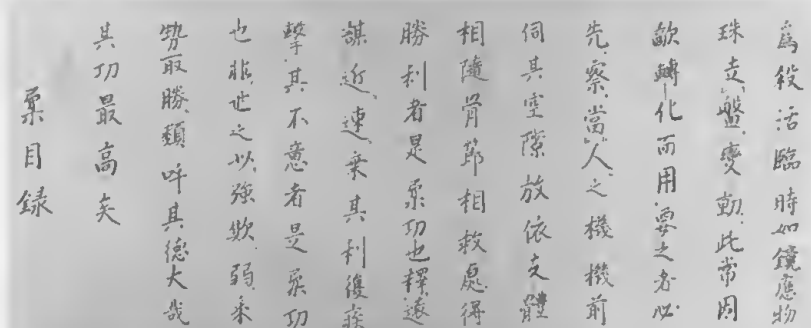 為殺活臨時如鏡應物
珠走盤變動此常因
敵轉化而用要之者必
先察當人之機機前
伺其空隙放依支體
相隨骨節相救處得
勝利者是柔功也釋遠
謀近速乗其利復疾
擊其不意者是柔功
也非世之以強欺弱乗
勢取勝類吁其德大哉
其功最高矣
柔目録